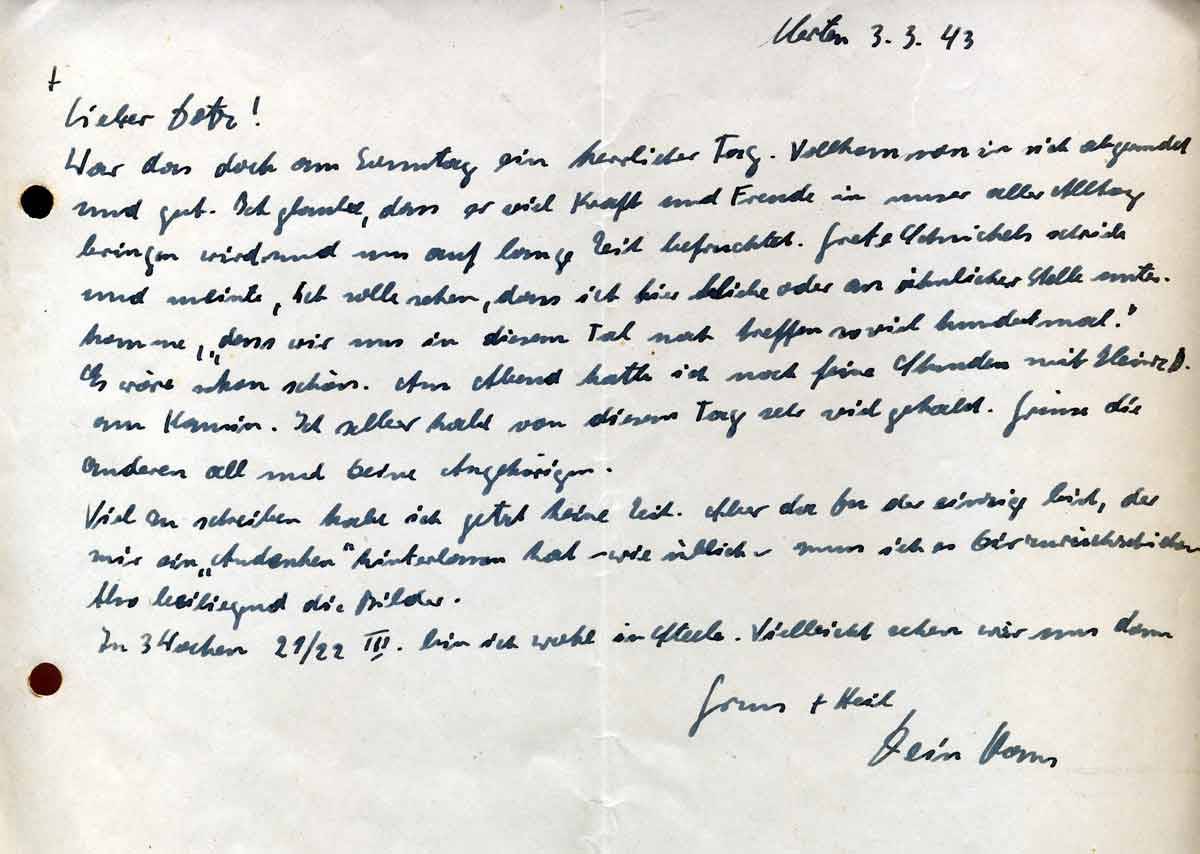 Merten 3.3.43
+
Lieber Peter!
War das doch am Sonntag ein herrlicher Tag. Vollkommen in sich abgerundet
und gut. Ich glaube, dass er viel Kraft und Freude in unser aller Alltag
bringen wird und uns auf lange Zeit befruchtet. Grete schrieb
und meinte, ich solle sehen, dass ich hier bliebe oder an ähnlicher Stelle unter-
komme, "dass wir uns in diesem Tal noch treffen so viel hundertmal."
Es wäre schon schön. Am Abend hatte ich noch feine Stunden mit Heinz D.
am Kamin. Ich selber habe von diesem Tag sehr viel gehabt. Grüsse die
anderen all und Deine Angehörigen.
Viel zu schreiben habe ich jetzt keine Zeit. Aber da Du der einzige bist, der
mir ein "Andenken" hinterlassen hat - wie üblich - muss ich es Dir zurückschicken
Also beiliegend die Bilder.
In 3 Wochen 21/22 III. bin ich wohl in Steele. Vielleicht sehen wir uns dann
Gruss + Heil
Dein Hans